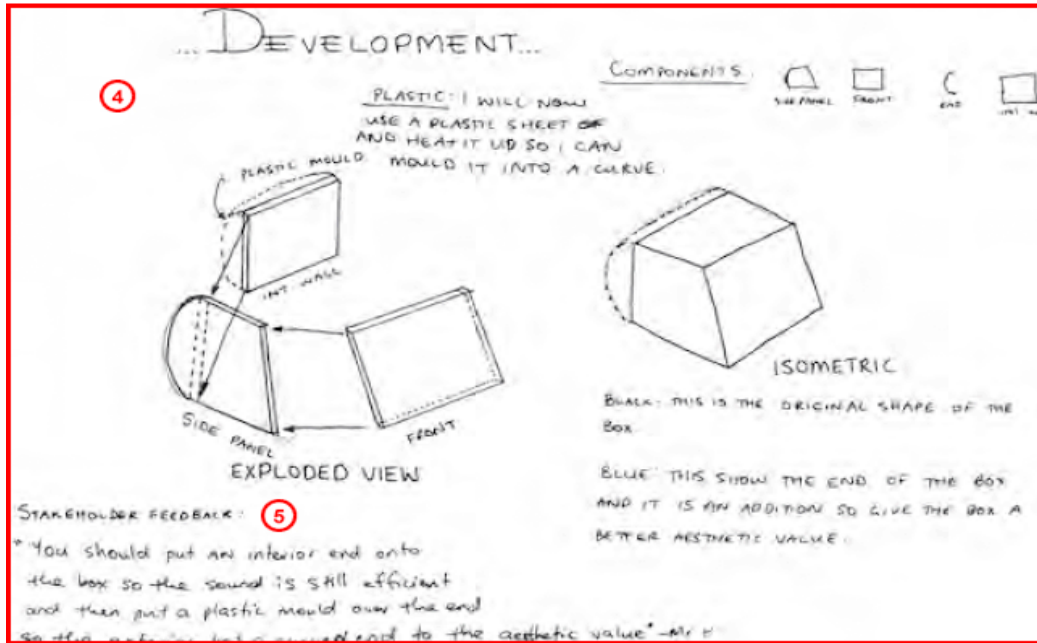 ...DEVELOPMENT...
4
PLASTIC: I WILL NOW
USE A PLASTIC SHEET
AND HEAT IT UP SO I CAN
MOULD IT INTO A CURVE.
COMPONENTS
SIDE PANEL
FRONT
END
INT
PLASTIC MOULD
INT WALL
SIDE PANEL
FRONT
EXPLODED VIEW
ISOMETRIC
BLACK: THIS IS THE ORIGINAL SHAPE OF THE
BOX
BLUE: THIS SHOW THE END OF THE BOX
AND IT IS AN ADDITION SO GIVE THE BOX A
BETTER AESTHETIC VALUE.
STAKEHOLDER FEEDBACK:
5
"You should put an interior end onto
the box so the sound is still efficient
and then put a plastic mould over the end
so the end to the aesthetic value" - Mr